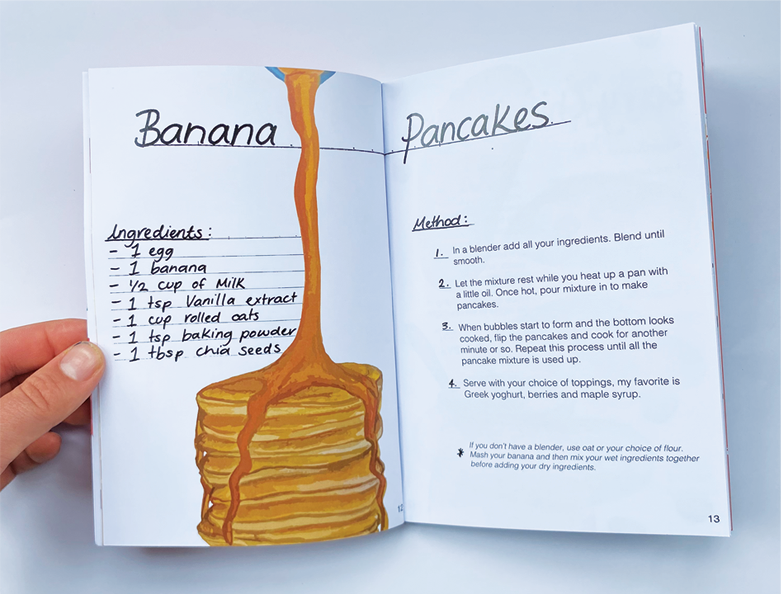 Banana Pancakes
Ingredients:
- 1 egg
- 1 banana
- 1/2 cup of Milk
- 1 tsp Vanilla extract
- 1 cup rolled oats
- 1 tsp baking powder
- 1 tbsp chia seeds
12
Method:
1. In a blender add all your ingredients. Blend until
smooth.
2. Let the mixture rest while you heat up a pan with
a little oil. Once hot, pour mixture in to make
pancakes.
3. When bubbles start to form and the bottom looks
cooked, flip the pancakes and cook for another
minute or so. Repeat this process until all the
pancake mixture is used up.
4. Serve with your choice of toppings, my favorite is
Greek yoghurt, berries and maple syrup.
* If you don't have a blender, use oat or your choice of flour.
Mash your banana and then mix your wet ingredients together
before adding your dry ingredients.
13